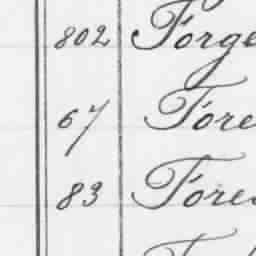 802 Forge
67 Fore
83 Fore